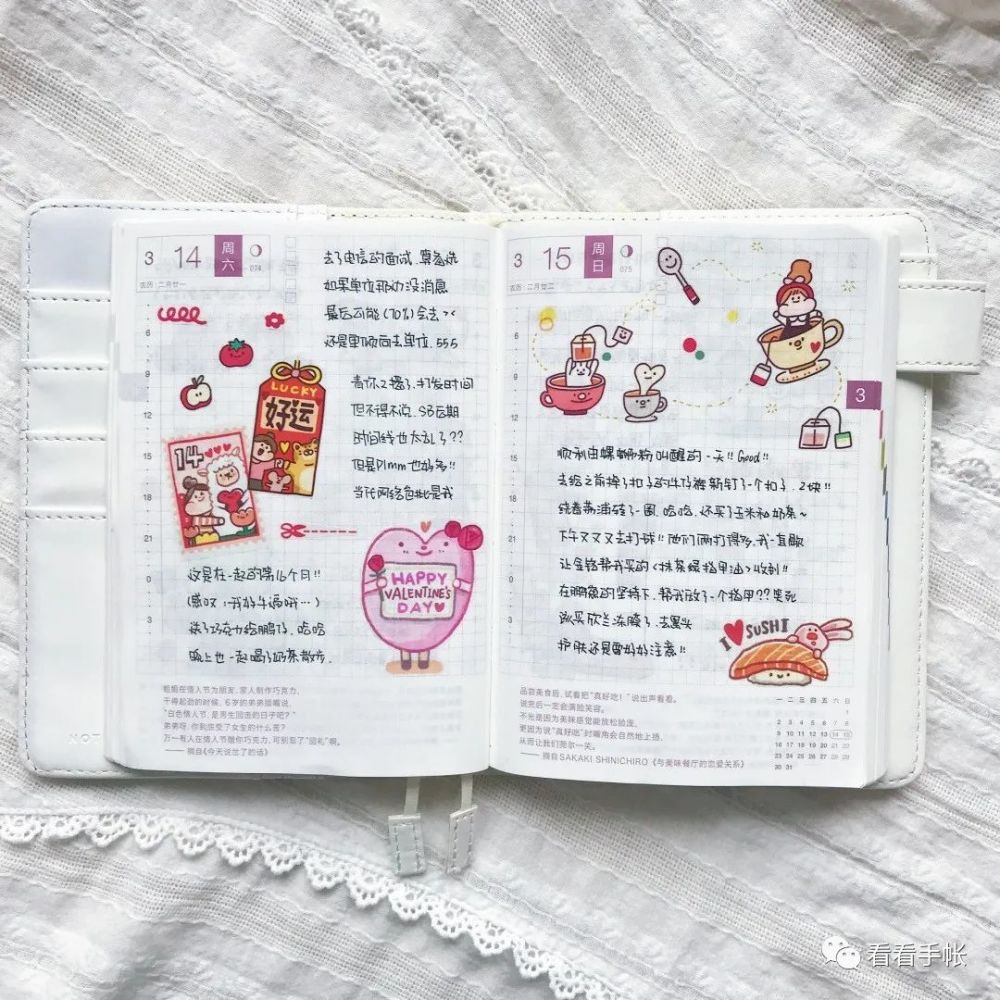 3 14 周六 074
农历:二月廿一
去了电信的面试，算备选
如果单位那边没消息
最后可能(70%)会去
还是更倾向去单位，555
青你2播了，打发时间
但不得不说，SB后期
时间线也太乱了??
但是Plmm也好多!!
当代网络
LUCKY
好运
14
HAPPY
VALENTINE'S
DAY
这是在一起的第16个月!!
(感叹:我好牛逼哦…)
送了巧克力给鹏了，哈哈
晚上也一起喝了奶茶散步.
6
9
12
15
18
21
0
3
姐姐在情人节为朋友、家人制作巧克力。
干得起劲的时候，6岁的弟弟插嘴说，
“白色情人节，是男生回击的日子吧？”
弟弟呀，你到底受了女生的什么苦？
万一有人在情人节赠你巧克力，可别忘了“回礼”啊。
—— 摘自《今天说岔了的话》
NOT
3 15 周日 075
农历:二月廿二
3
6
9
12
15
18
21
0
3
顺利由螺蛳粉叫醒的一天!! Good!!
去给之前掉了扣子的牛仔裤新钉了一个扣子，2块!!
绕着荷浦转了一圈，哈哈，还买了玉米和奶茶~
下午又又又去打球!! 他们俩打得多，我一直歇
让金铭帮我买的《抹茶绿指甲油》收到!!
在鹏的坚持下，帮我放了一个指甲??笑死
欣兰冻膜了，去黑头
护肤还是要好好注意!!
I SUSHI
品尝美食后，试着把“真好吃！”说出声看看。
说完后一定会满脸笑容。
不光是因为美味感觉能放松脸庞，
更因为说“真好吃”时嘴角会自然地上扬，
从而让我们莞尔一笑。
—— 摘自SAKAKI SHINICHIRO《与美味餐厅的恋爱关系》
一 二 三 四 五 六 日
1
2 3 4 5 6 7 8
9 10 11 12 13 14 15
16 17 18 19 20 21 22
23 24 25 26 27 28 29
30 31
看看手帐